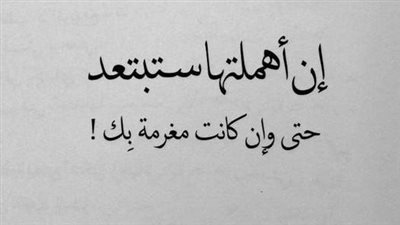 إن أهملتها ستبتعد
حتى وإن كانت مغرمة بِك !